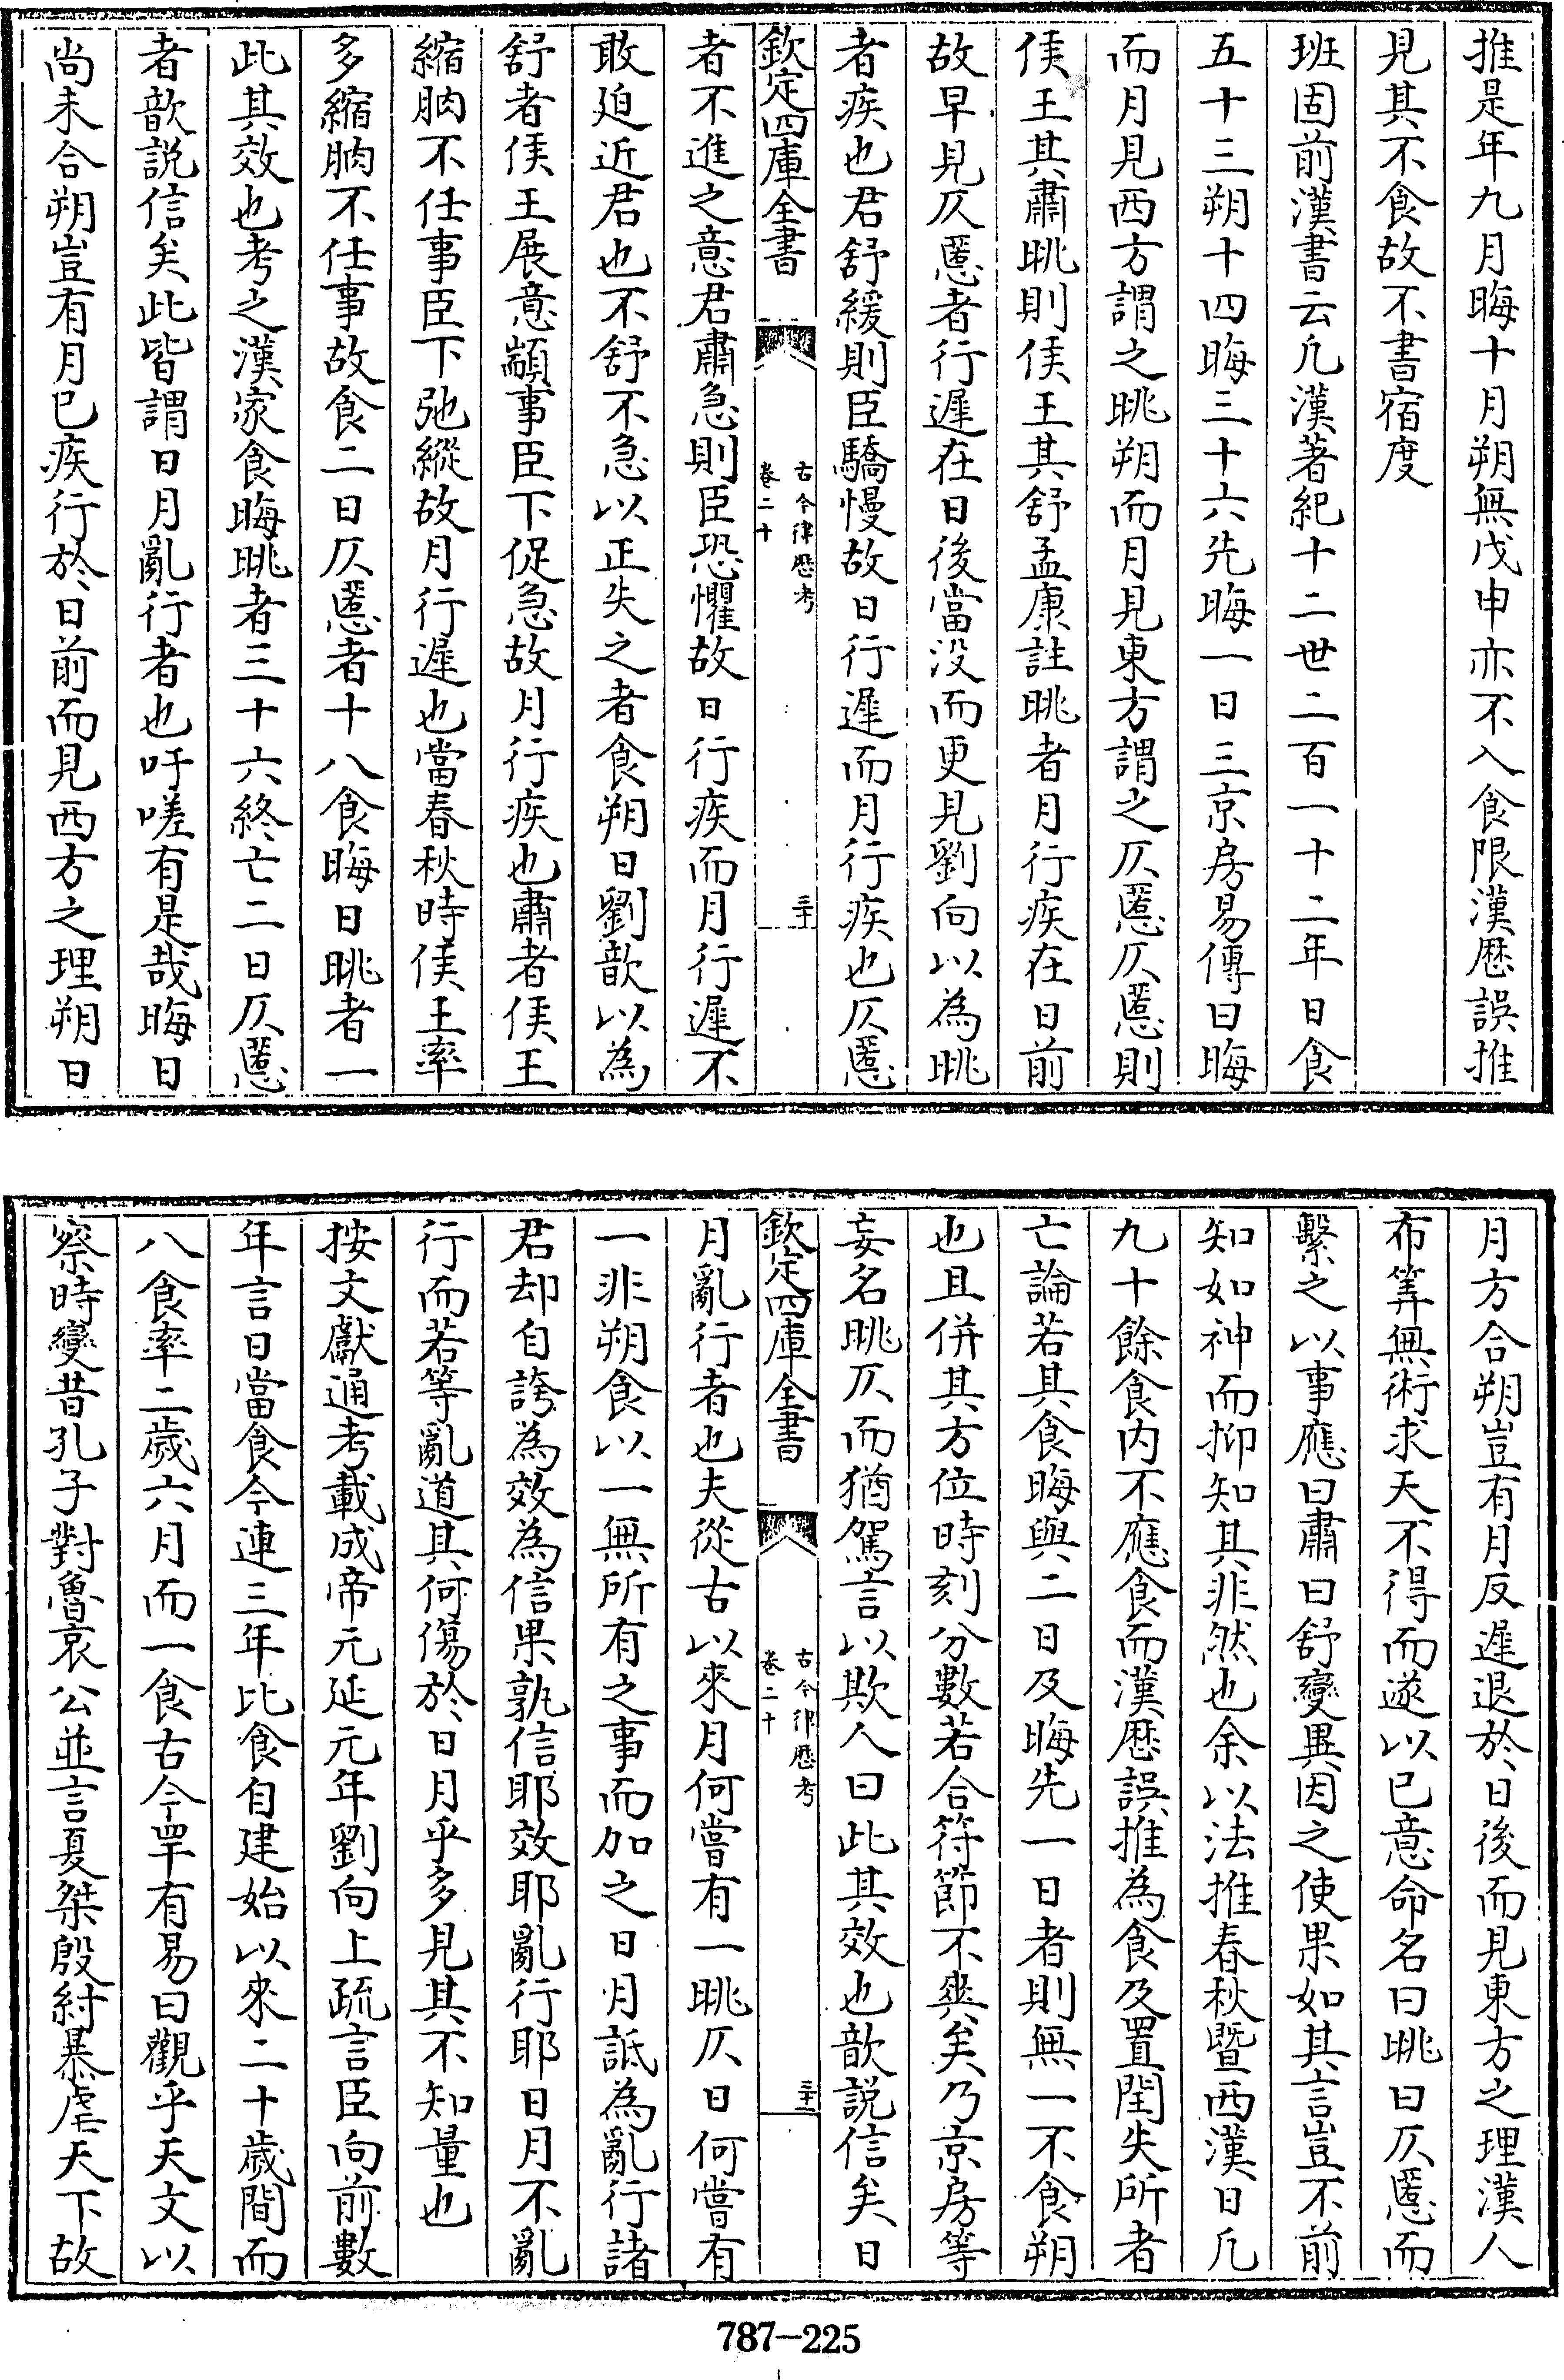 推是年九月晦十月朔無戊申亦不入食限漢歴誤推
見其不食故不書宿度
班固前漢書云凡漢著紀十二世二百一十二年日食
五十三朔十四晦三十六先晦一日三京房易傳曰晦
而月見西方謂之朓朔而月見東方謂之仄慝仄慝則
侯王其肅朓則侯王其舒孟康註朓者月行疾在日前
故早見仄慝者行遲在日後當没而更見劉向以為朓
者疾也君舒緩則臣驕慢故日行遲而月行疾也仄慝
欽定四庫全書
古今律歴考
卷二十
三十
者不進之意君肅急則臣恐懼故日行疾而月行遲不
敢迫近君也不舒不急以正失之者食朔日劉歆以為
舒者侯王展意顓事臣下促急故月行疾也肅者侯王
縮朒不任事臣下弛縱故月行遲也當春秋時侯王率
多縮朒不任事故食二日仄慝者十八食晦日朓者一
此其效也考之漢家食晦朓者三十六終亡二日仄慝
者歆説信矣此皆謂日月亂行者也吁嗟有是哉晦日
尚未合朔豈有月已疾行於日前而見西方之理朔日
月方合朔豈有月反遲退於日後而見東方之理漢人
布筭無術求天不得而遂以已意命名曰朓曰仄慝而
繫之以事應曰肅曰舒變異因之使果如其言豈不前
知如神而抑知其非然也余以法推春秋暨西漢日凡
九十餘食内不應食而漢歴誤推為食及置閏失所者
亡論若其食晦與二日及晦先一日者則無一不食朔
也且併其方位時刻分數若合符節不爽矣乃京房等
妄名朓仄而猶駕言以欺人曰此其效也歆説信矣日
欽定四庫全書
古今律歴考
卷二十
三十
月亂行者也夫從古以來月何嘗有一朓仄日何嘗有
一非朔食以一無所有之事而加之日月詆為亂行諸
君却自誇為效為信果孰信耶效耶亂行耶日月不亂
行而若等亂道其何傷於日月乎多見其不知量也
按文獻通考載成帝元延元年劉向上疏言臣向前數
年言日當食今連三年比食自建始以來二十歲間而
八食率二歲六月而一食古今罕有易曰觀乎天文以
察時變昔孔子對魯哀公並言夏桀殷紂暴虐天下故
787-225